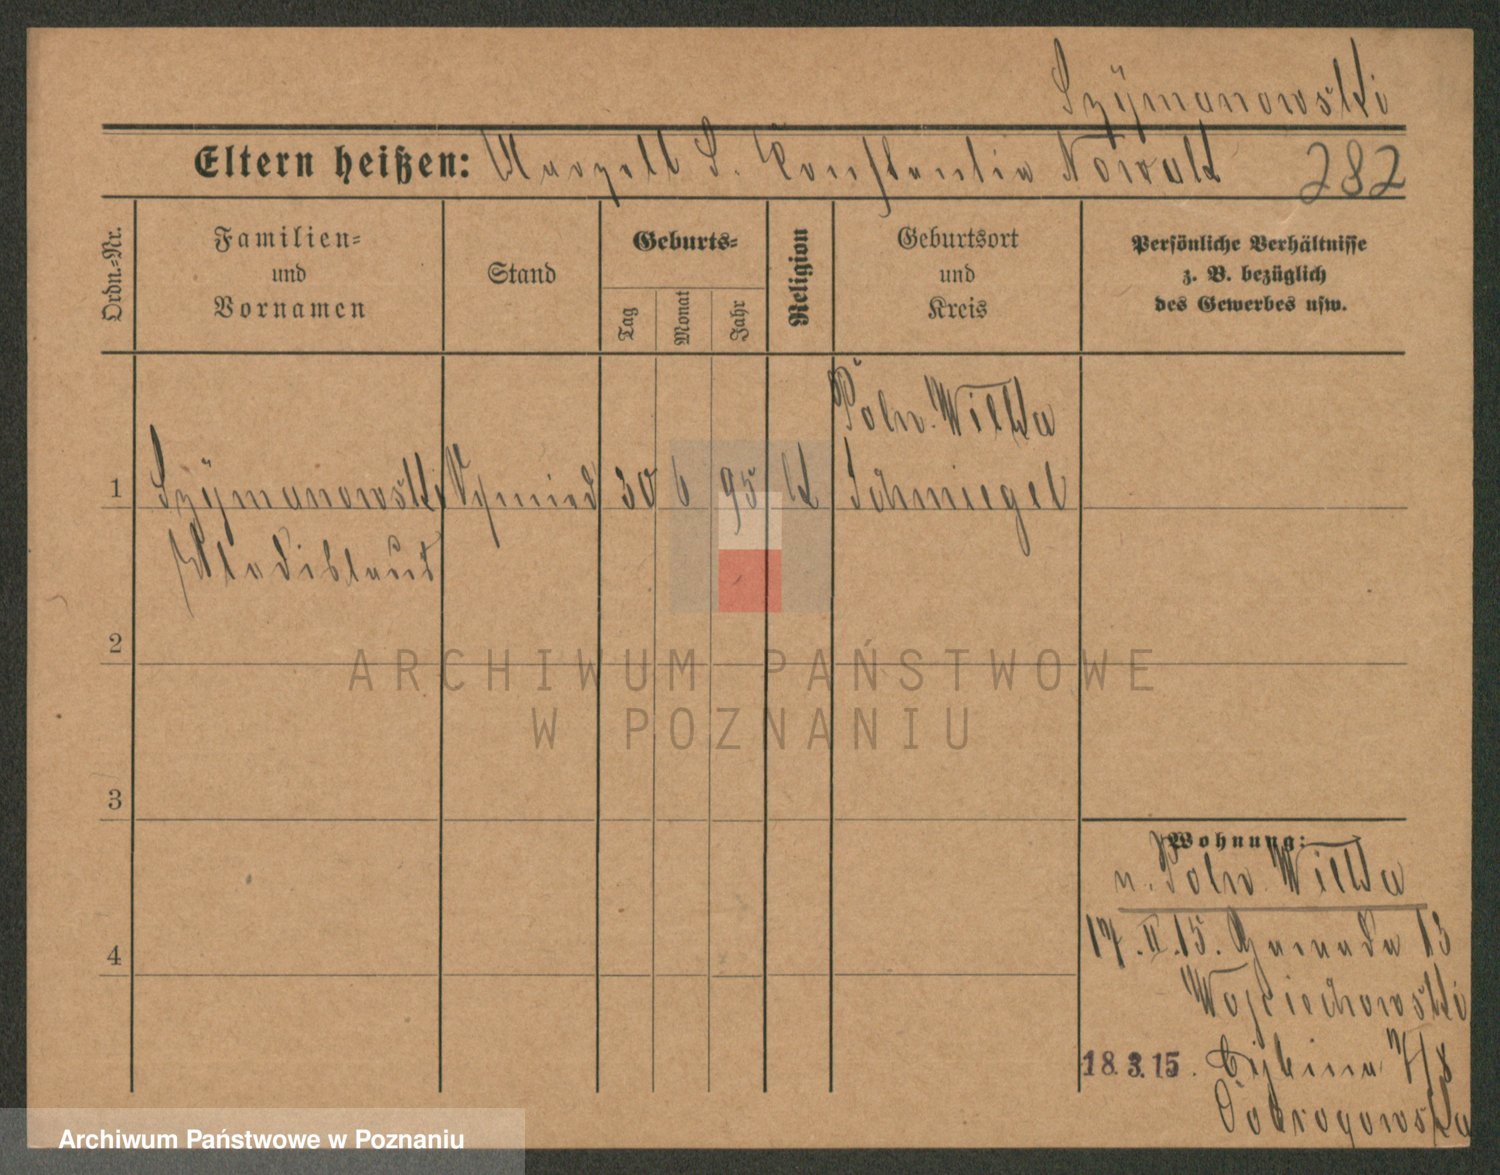 Szymanowski
Eltern heißen: Marzell S. Konstantia Nowak 282
Ordn.-Nr.
Familien-
und
Vornamen
Stand
Geburts-
Tag
Monat
Jahr
Religion
Geburtsort
und
Kreis
Persönliche Verhältnisse
z. B. bezüglich
des Gewerbes usw.
Poln. Wilke
1 Szymanowski Schmied 30 6 95 k Schmiegel
Wladislaus
2
ARCHIWUM PAŃSTWOWE
W POZNANIU
3
Wohnung:
v. Poln. Wilke
4
17. II. 15. 13
Wojciechowski
18. 3. 15. Cybina 7/8
Dobrogowska
Archiwum Państwowe w Poznaniu